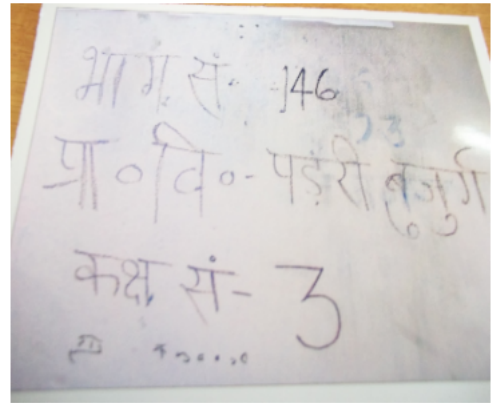 भाग सं- 146
प्रा०वि०- पड़री बुजुर्ग
कक्ष सं- 3